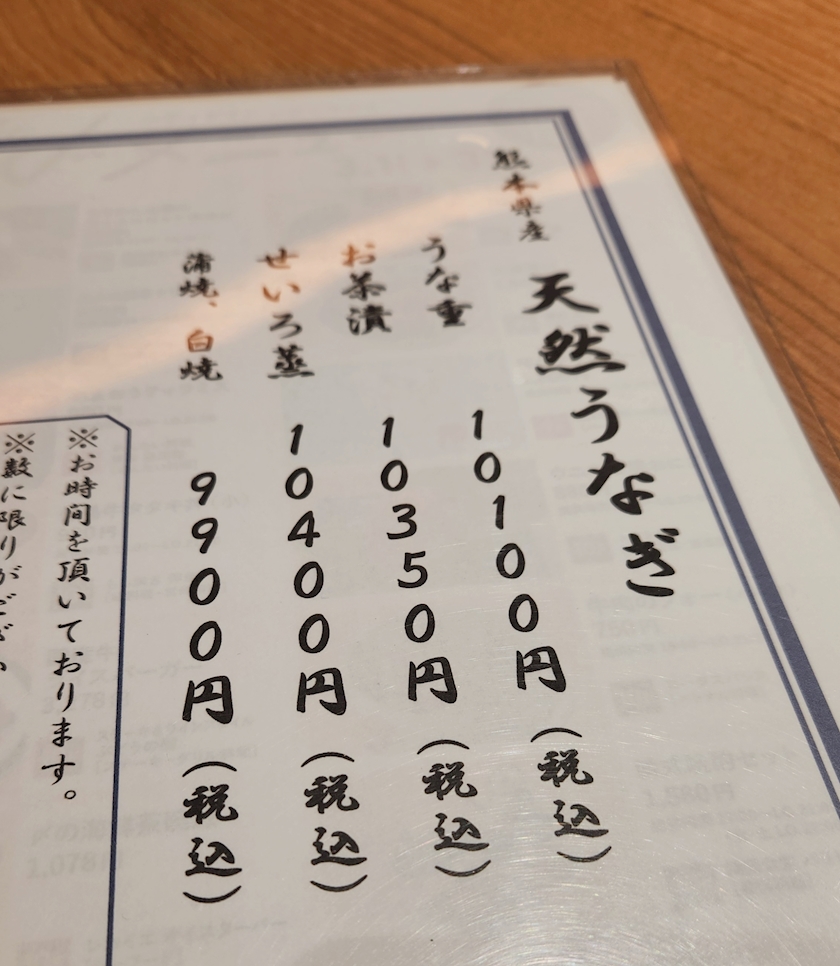 熊本県産
天然うなぎ
うな重 10100円(税込)
お茶漬 10350円(税込)
せいろ蒸 10400円(税込)
蒲焼、白焼 9900円(税込)
※お時間を頂いております。
※数に限りがござい